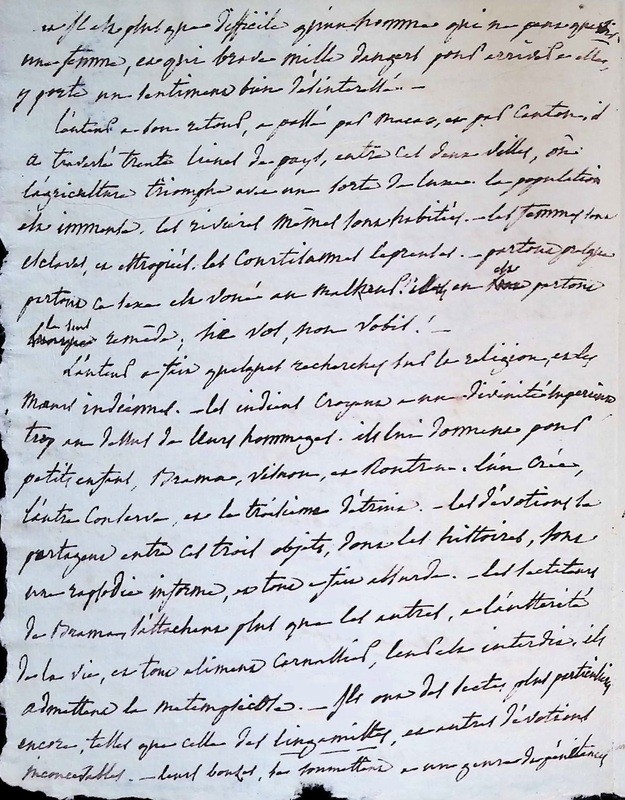 il est plus que difficile qu'un homme qui ne pense qu'à
une femme, et qui brave mille dangers pour arriver a elle,
y porte un sentiment bien désinteressé. —
L'auteur a son retour, a passé par Macao, et par Canton, il
a traversé trente lieues de pays, entre ces deux villes, où
l'agriculture triomphe avec une sorte de luxe. la population
est immense. les rivieres mêmes sont habitées. — les femmes sont
esclaves, et estropiées. les Courtisannes lepreuses. — partout presque
partout ce sexe est voué au malheur! en est partout
le seul remède; sic vos, non vobis! —
L'auteur a fait quelques recherches sur la religion, et les
Mœurs indiennes. — les indiens Croyent a une divinité Superieure
trop au dessus de leurs hommages. ils lui donnent pour
petits enfans, Brama, Visnou, et Routren. l'un Crée,
l'autre Conserve, et le troisieme détruit. — les dévotions se
partagent entre ces trois objets, dont les histoires, sont
une rapsodie informe, et tout a fait absurde. — les sectateurs
de Brama, s'attachent plus que les autres, a l'austerité
de la vie, et tout aliment Carnassier, leur est interdit. ils
admettent la metempsicose. — Ils ont des sectes plus particulieres
encore, telles que celle des lingamistes, et autres dévotions
inconcevables. — leurs bonzes, se soumettent a un genre de pénitences